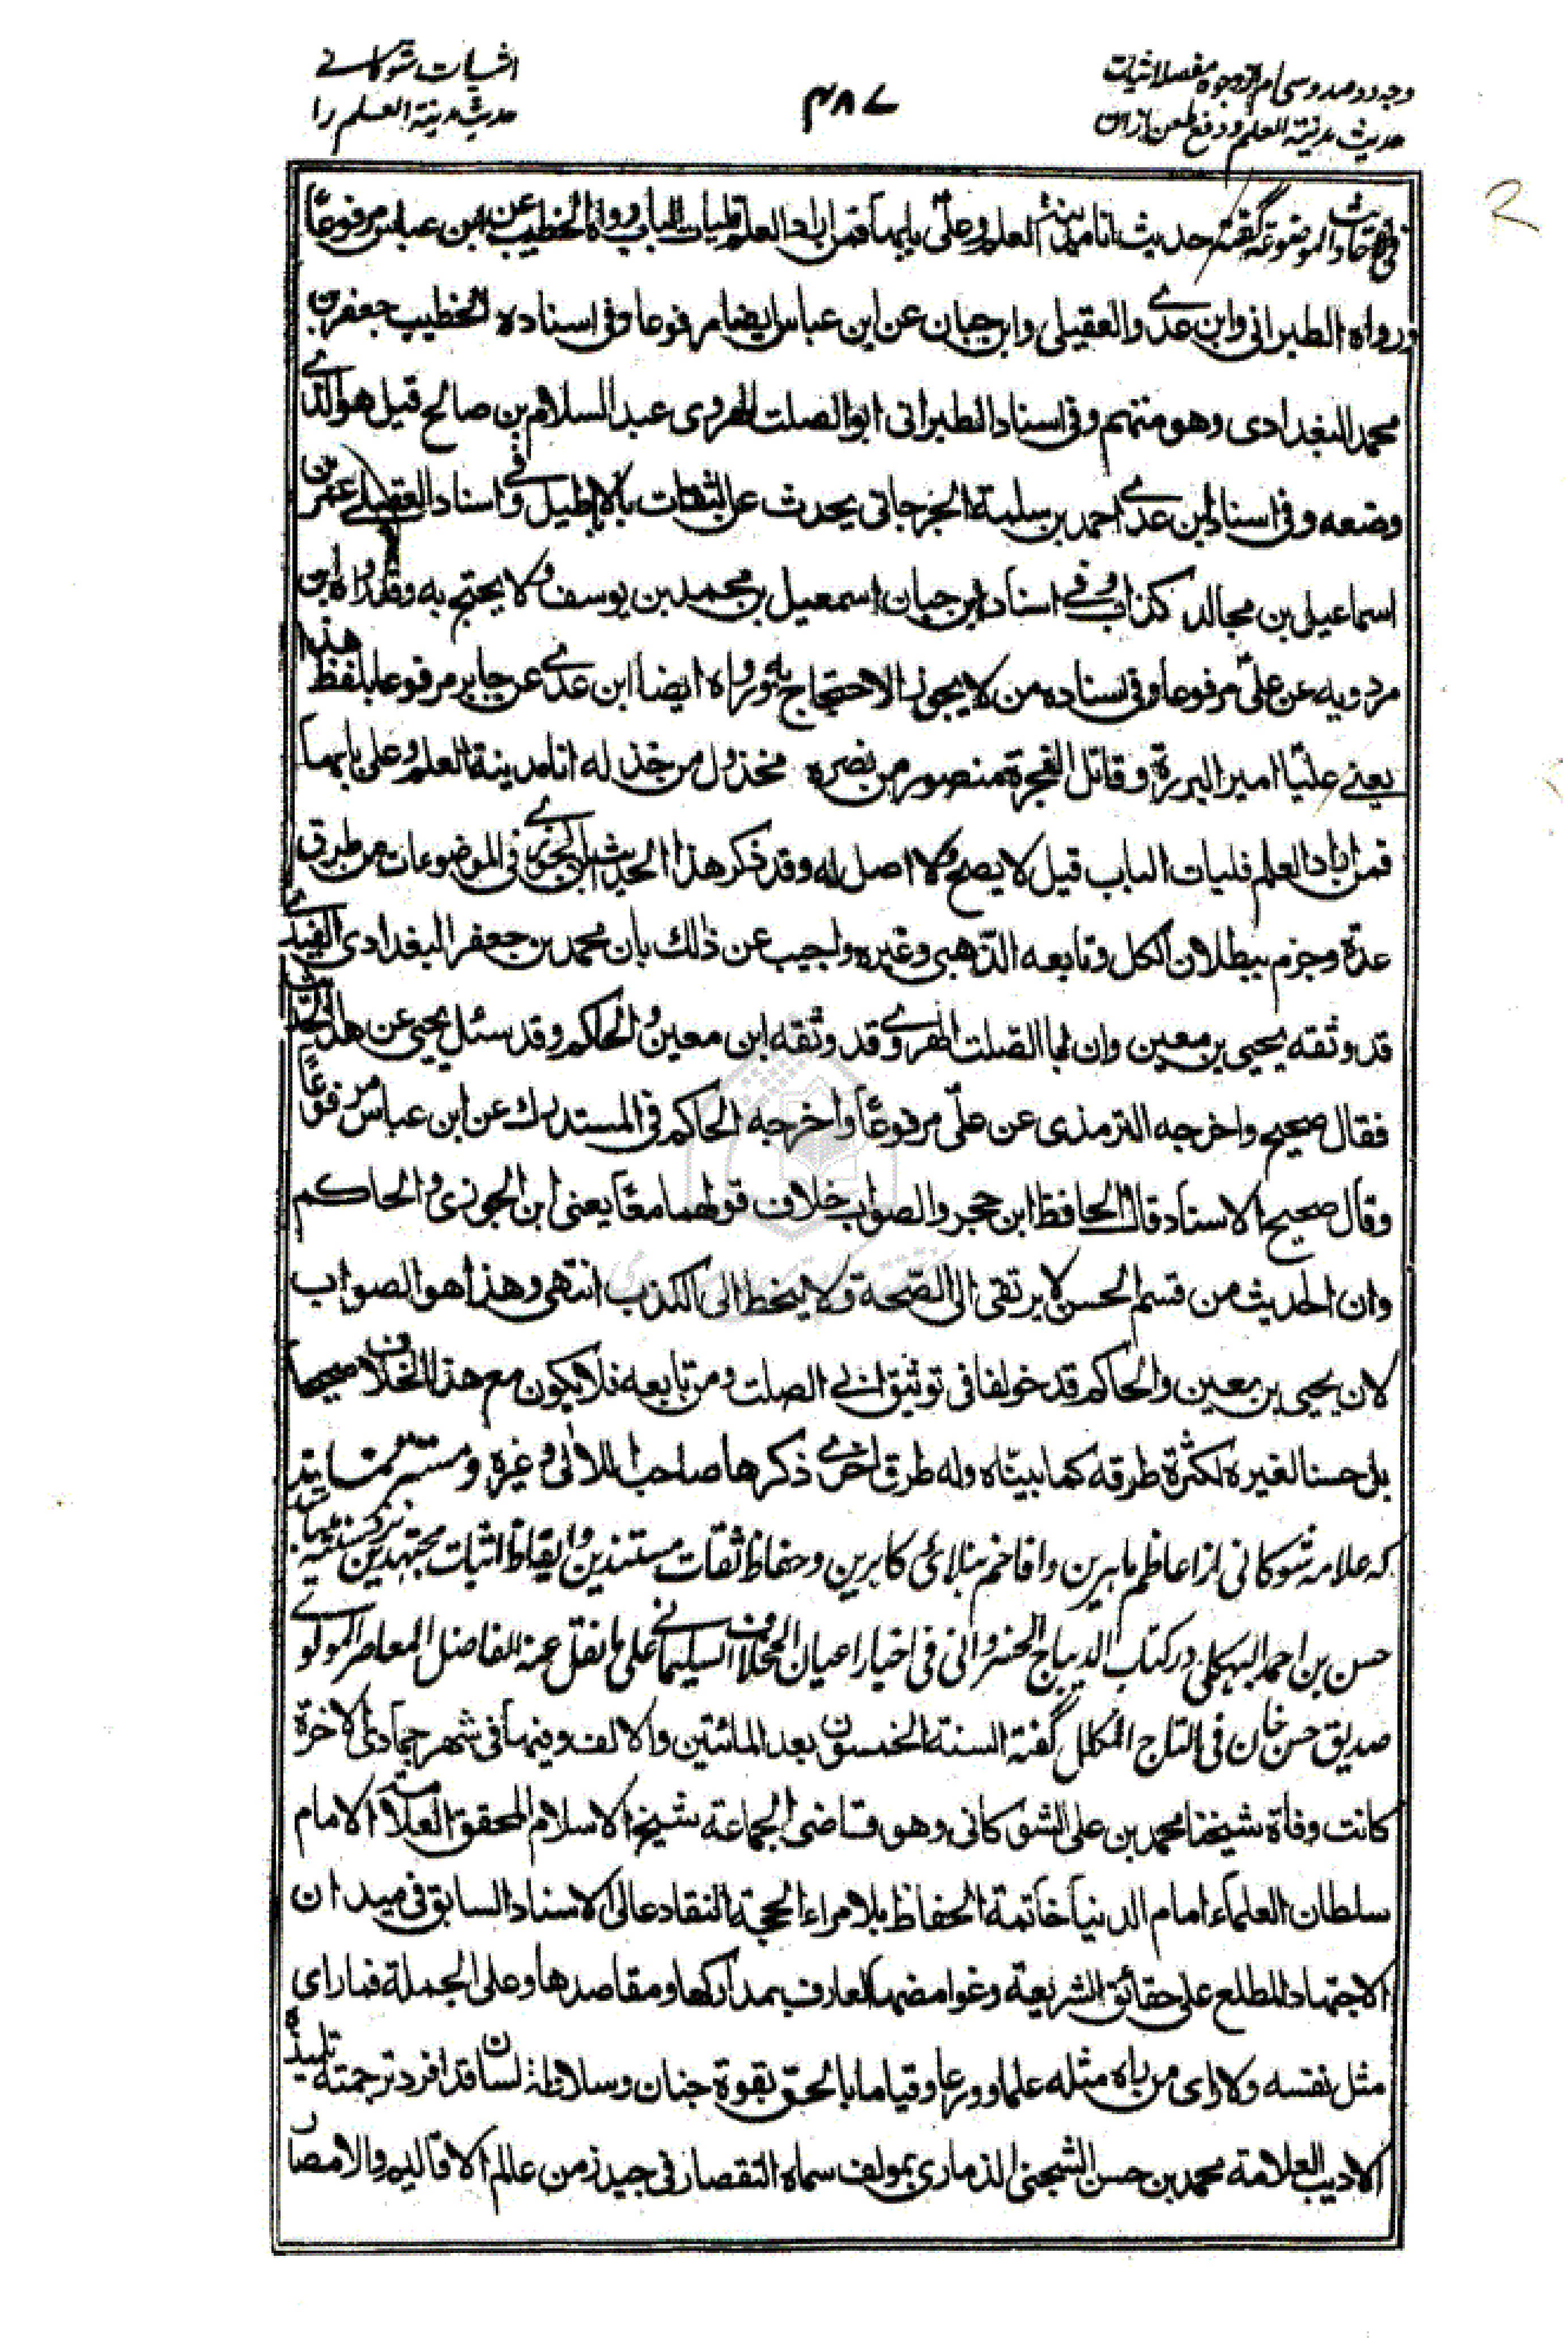 وجه دو صد و سی ام از وجوه مفصله اثبات
حدیث مدینة العلم و دفع طعن از ان
۴۸۷
اثبات شوکانے
حدیث مدینة العلم را
فی الاحادیث الموضوعة گفته حدیث انا مدینة العلم وعلیّ بابها فمن اراد العلم فلیات الباب رواه الخطیب عن ابن عباس مرفوعًا
ورواه الطبرانی وابن عدے والعقیلی وابن حبان عن ابن عباس ایضا مرفوعا وفی اسناده الخطیب جعفر بن
محمد البغدادی وهو متهم وفی اسناد الطبرانی ابو الصلت الهروی عبد السلام بن صالح قیل هو الذے
وضعه وفی اسناد ابن عدے احمد بن سلمة الجرجانی یحدث عن الثقات بالاباطیل وفی اسناد العقیلے عمر بن
اسماعیل بن مجالد کذاب وفے اسناد ابن حبان اسمعیل بن محمد بن یوسف ولا یحتج به وقد رواه ابن
مردویه عن علیّ مرفوعا وفی اسناده من لا یجوز الاحتجاج به ورواه ایضا ابن عدے عن جابر مرفوعا بلفظ هذا
یعنے علیًا امیر البررة وقاتل الفجرة منصور من نصره مخذول من خذله انا مدینة العلم وعلی بابها
فمن اراد العلم فلیات الباب قیل لا یصح ولا اصل له وقد ذکر هذا الحدیث ابن الجوزے فی الموضوعات من طرق
عدة وجزم ببطلان الکل وتابعه الذهبی وغیره واجیب عن ذلك بان محمد بن جعفر البغدادی الفیدے
قد وثقه یحیی بن معین وان ابا الصلت الهروے قد وثقه ابن معین والحاکم وقد سئل یحیی عن هذا الحدیث
فقال صحیح واخرجه الترمذی عن علیّ مرفوعًا واخرجه الحاکم فی المستدرك عن ابن عباس مرفوعًا
وقال صحیح الاسناد قال الحافظ ابن حجر والصواب خلاف قولهما معًا یعنی ابن الجوزی والحاکم
وان الحدیث من قسم الحسن لا یرتقی الی الصّحة ولا ینحط الی الکذب انتهی وهذا هو الصواب
لان یحیی بن معین والحاکم قد خولفا فی توثیق ابے الصلت ومن تابعه فلا یکون مع هذا الخلاف صحیحا
بل حسنا لغیره لکثرة طرقه کما بیناه وله طرق اخرے ذکرها صاحب اللآلی وغیره ومستتر نماند
که علامه شوکانی از اعاظم ماهرین وافاخم نبلای کابرین وحفاظ ثقات مستندین وایقاظ اثبات مجتهدین نزد سنیه میباشد
حسن بن احمد البهکلی در کتاب الدیباج الخسروانی فی اخبار اعیان المخلاف السلیمانے علی ما نقل عنه الفاضل المعاصر المولوے
صدیق حسن خان فی التاج المکلل گفته السنة الخمسون بعد المائتین والالف وفیها فی شهر جمادی الاخرة
کانت وفاة شیخنا محمد بن علی الشوکانی وهو قاضی الجماعة شیخ الاسلام المحقق العلامة الامام
سلطان العلماء امام الدنیا خاتمة الحفاظ بلا مراء الحجة النقاد عالی الاسناد السابق فی میدان
الاجتهاد المطلع علی حقائق الشریعة وغوامضها العارف بمدارکها ومقاصدها وعلی الجملة فما رای
مثل نفسه ولا رای من راه مثله علما وورعا وقیاما بالحق بقوة جنان وسلاطة لسان قد افرد ترجمته تلمیذه
الادیب العلامة محمد بن حسن الشجنی الذماری بمولف سماه التقصار فی جید زمن عالم الاقالیم والامصار